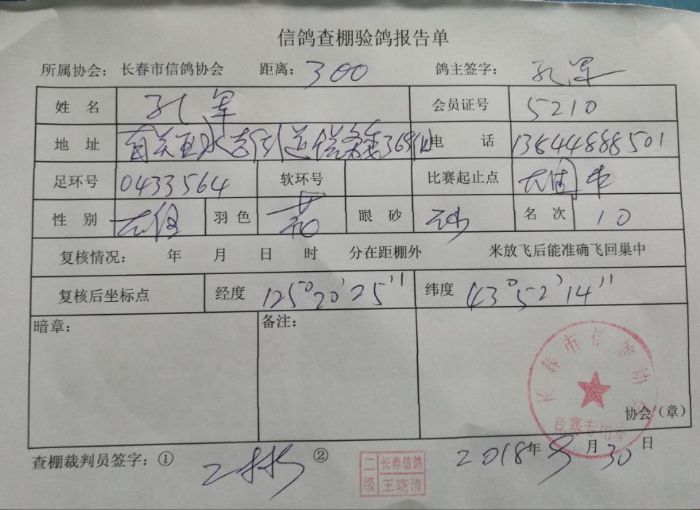 信鸽查棚验鸽报告单
所属协会: 长春市信鸽协会 距离: 300 鸽主签字: 孔军
姓 名 孔军 会员证号 5210
地 址 电 话 13844888501
足环号 0433564 软环号 比赛起止点
性 别 羽 色 眼 砂 名 次 10
复核情况: 年 月 日 时 分在距棚外 米放飞后能准确飞回巢中
复核后坐标点 经度 125°20′25″ 纬度 43°52′14″
暗章: 备注:
长春市信鸽协会
竞赛专用章
协会/(章)
查棚裁判员签字: ① ② 二级 长春信鸽 王晓清 2018年 月30日